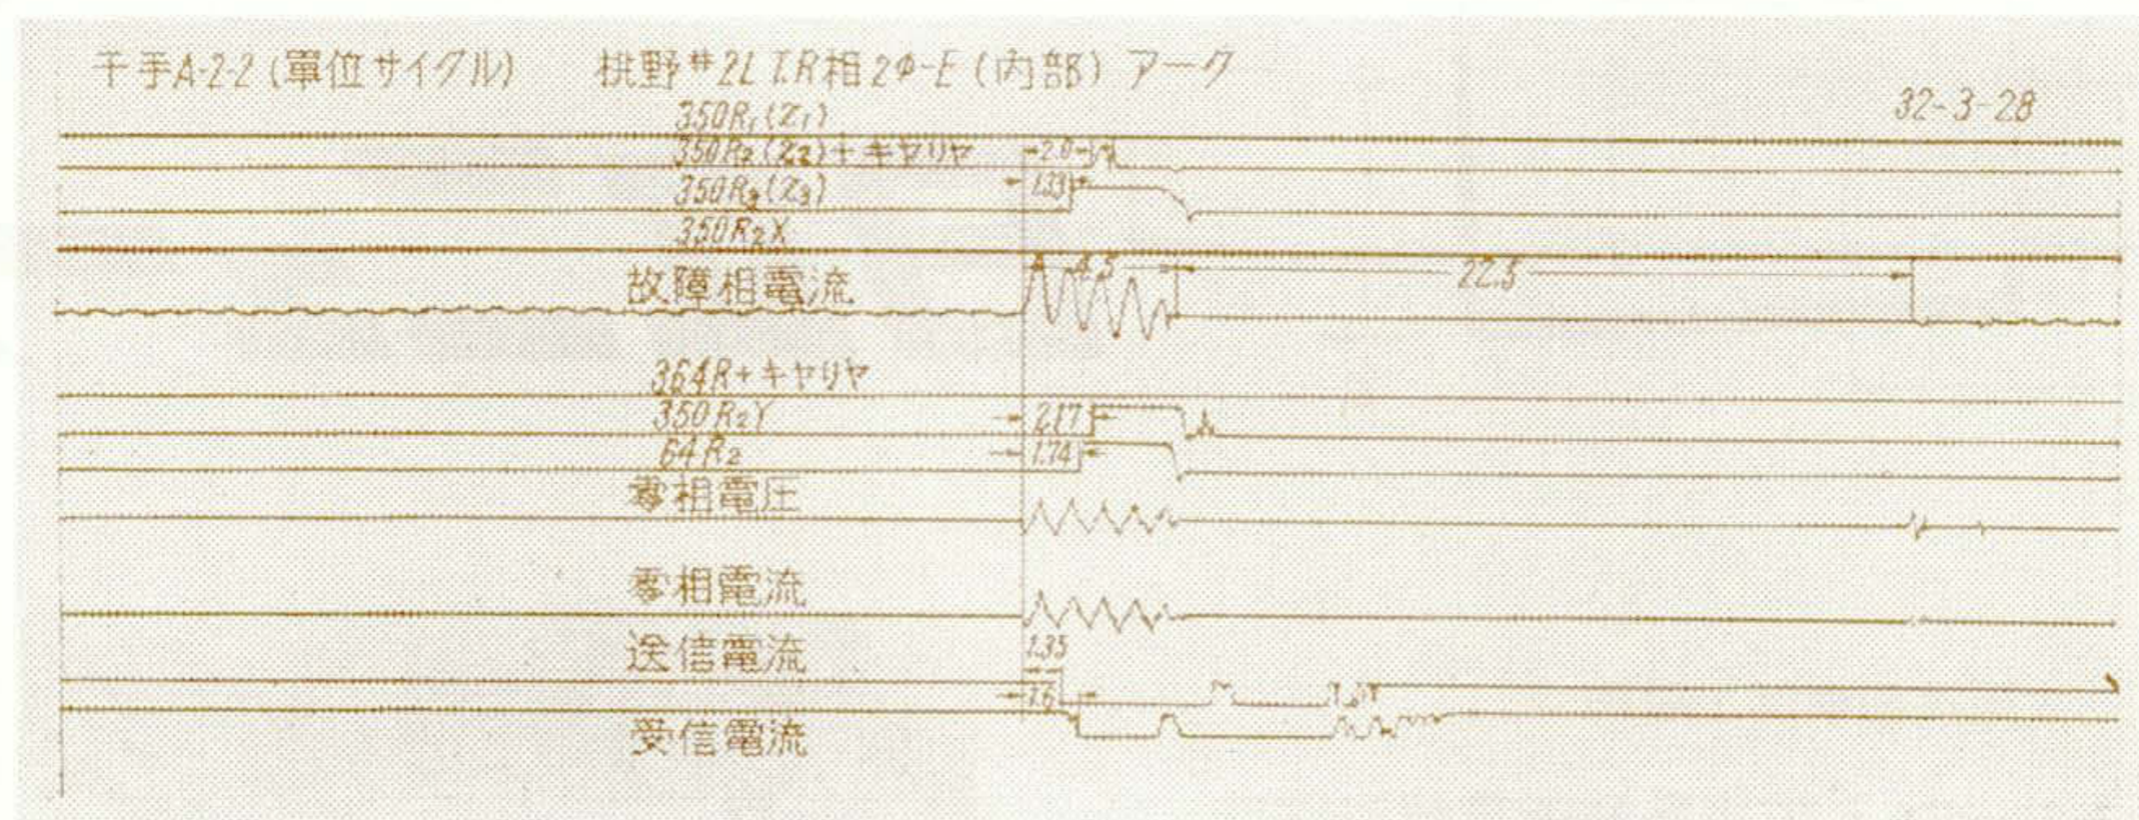 千手A-2-2 (單位サイクル) 桃野#2L T.R相2φ-E (内部) アーク
32-3-28
350R₁(Z₁)
350R₂(Z₂)+キャリヤ 2.0
350R₃(Z₃) 1.33
350R₂X
故障相電流 4.5 22.3
364R+キャリヤ
350R₂Y 2.17
64R₂ 1.74
零相電圧
零相電流
送信電流 1.35
1.6
受信電流